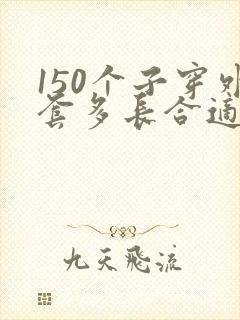 150个子穿外
套多长合适
九天飛流